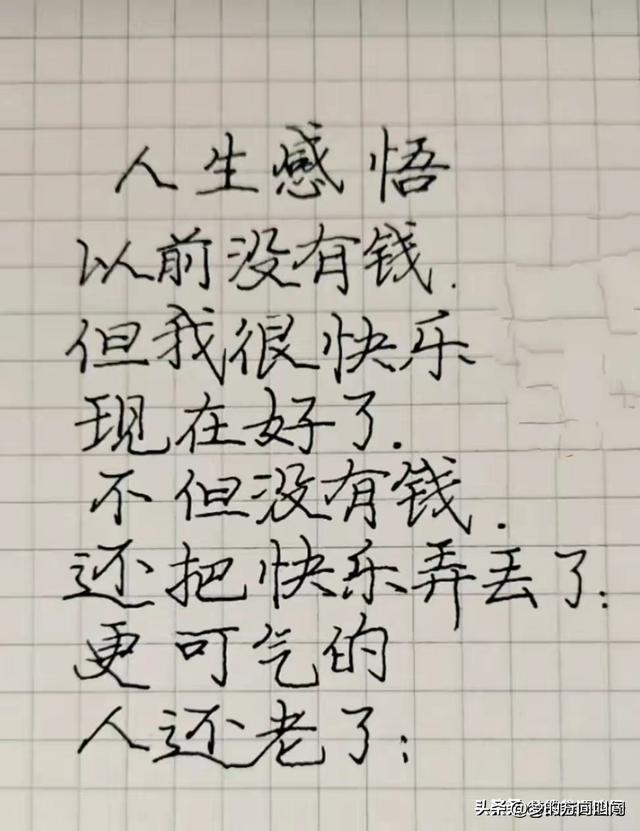 人生感悟
以前没有钱.
但我很快乐
现在好了.
不但没有钱.
还把快乐弄丢了;
更可气的
人还老了;
头条